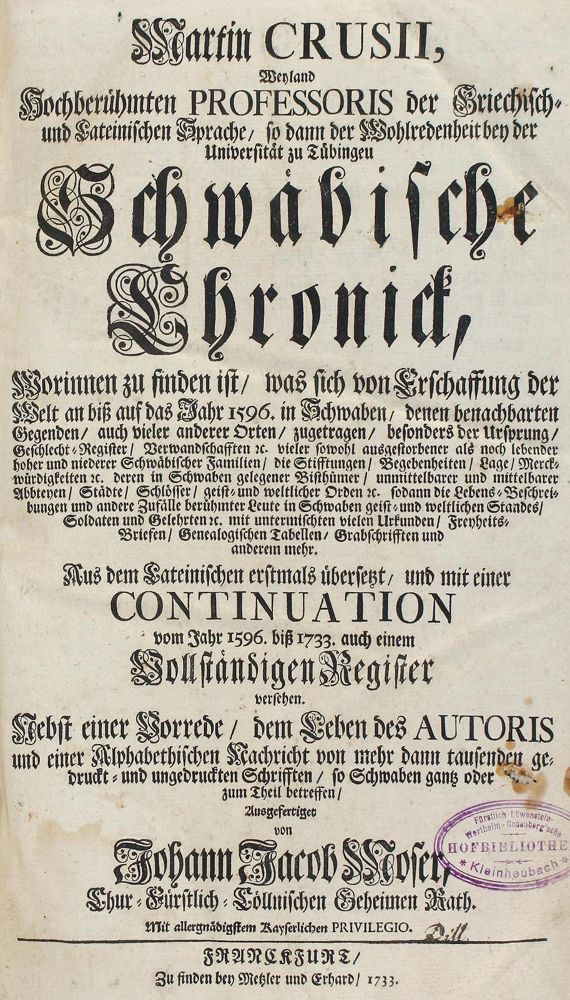 Martin CRUSII,
Weyland
Hochberühmten PROFESSORIS der Griechisch-
und Lateinischen Sprache/ so dann der Wohlredenheit bey der
Universität zu Tübingen
Schwäbische
Chronick,
Worinnen zu finden ist/ was sich von Erschaffung der
Welt an biß auf das Jahr 1596. in Schwaben/ denen benachbarten
Gegenden/ auch vieler anderer Orten/ zugetragen/ besonders der Ursprung/
Geschlecht-Register/ Verwandschafften ꝛc. vieler sowohl ausgestorbener als noch lebender
hoher und niederer Schwäbischer Familien/ die Stifftungen/ Begebenheiten/ Lage/ Merck-
würdigkeiten ꝛc. deren in Schwaben gelegener Bisthümer/ unmittelbarer und mittelbarer
Abbteyen/ Städte/ Schlösser/ geist- und weltlicher Orden ꝛc. sodann die Lebens-Beschrei-
bungen und andere Zufälle berühmter Leute in Schwaben geist- und weltlichen Standes/
Soldaten und Gelehrten ꝛc. mit untermischten vielen Urkunden/ Freyheits-
Briefen/ Genealogischen Tabellen/ Grabschrifften und
anderem mehr.
Aus dem Lateinischen erstmals übersetzt/ und mit einer
CONTINUATION
vom Jahr 1596. biß 1733. auch einem
Vollständigen Register
versehen.
Nebst einer Vorrede/ dem Leben des AUTORIS
und einer Alphabethischen Nachricht von mehr dann tausenden ge-
druckt- und ungedruckten Schrifften/ so Schwaben gantz oder
zum Theil betreffen/
Ausgefertiget
von
Johann Jacob Moser,
Chur-Fürstlich-Cöllnischen Geheimen Rath.
Fürstlich Löwenstein-
Wertheim-Rosenberg'sche
HOFBIBLIOTHE
* Kleinheubach *
Mit allergnädigstem Kayserlichen PRIVILEGIO.
FRANCKFURT/
Zu finden bey Metzler und Erhard/ 1733.